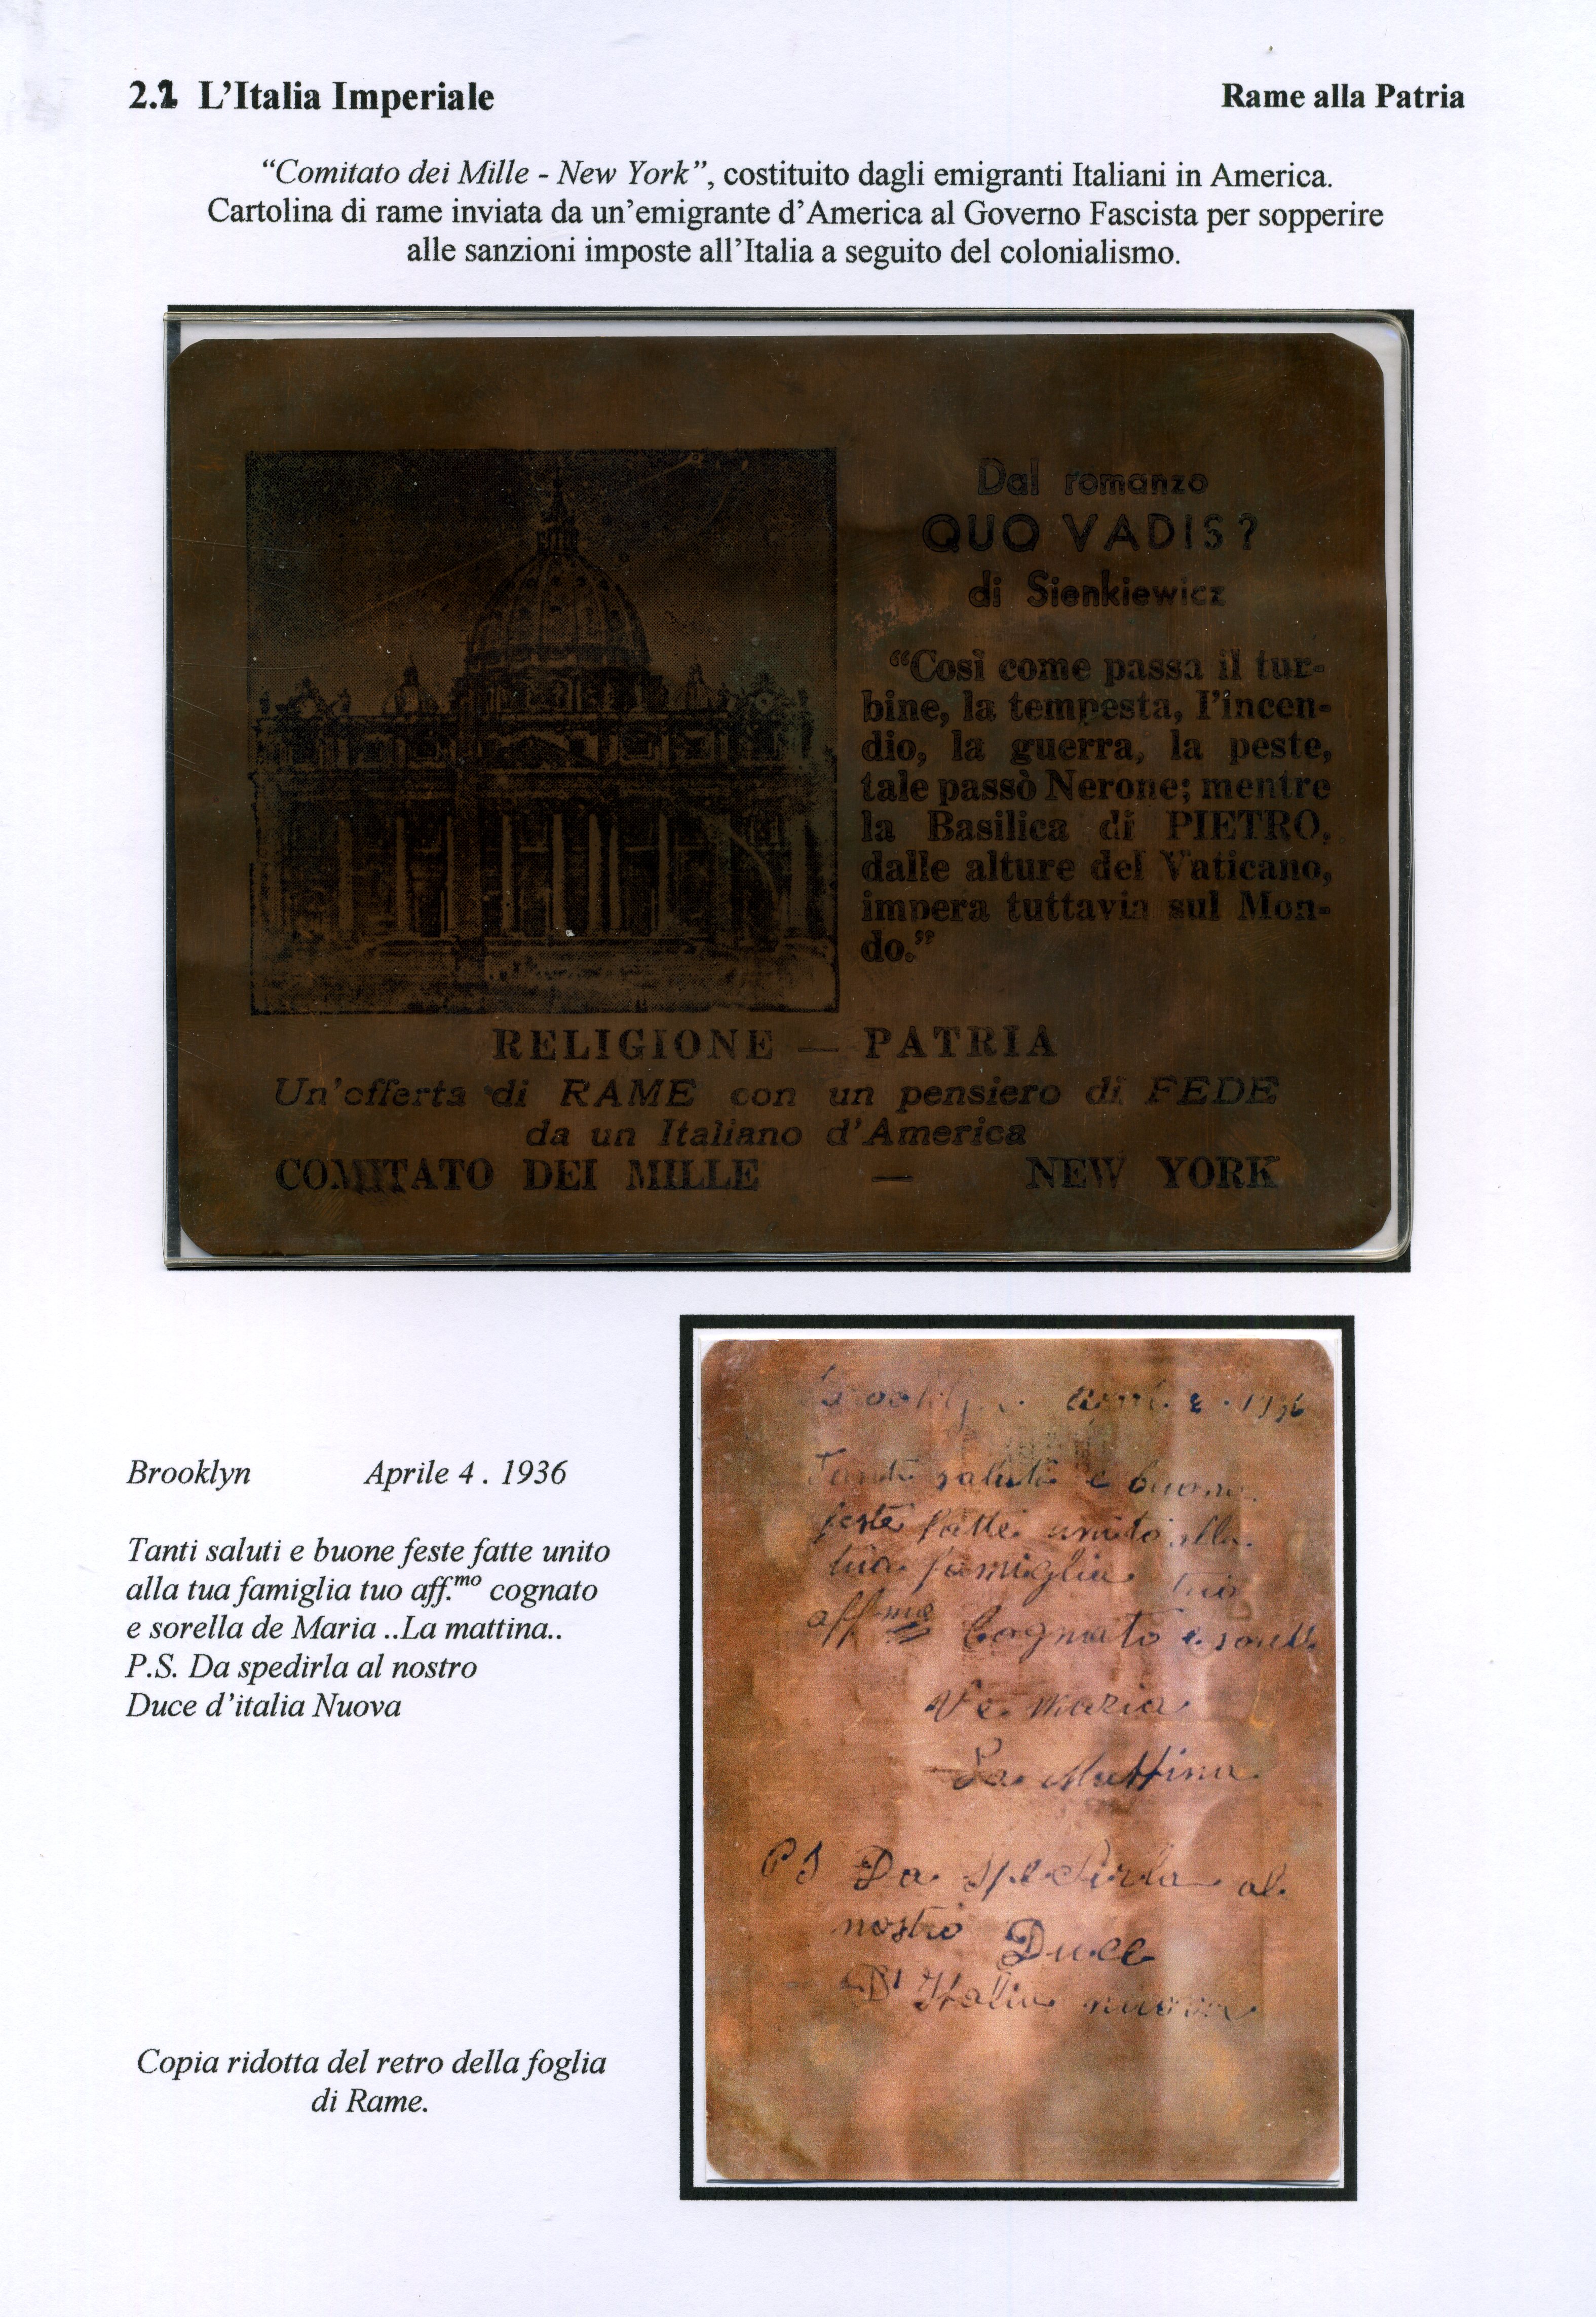 2.1 L’Italia Imperiale
Rame alla Patria
“Comitato dei Mille - New York”, costituito dagli emigranti Italiani in America.
Cartolina di rame inviata da un’emigrante d’America al Governo Fascista per sopperire
alle sanzioni imposte all’Italia a seguito del colonialismo.
Dal romanzo
QUO VADIS?
di Sienkiewicz
“Così come passa il tur-
bine, la tempesta, l’incen-
dio, la guerra, la peste,
tale passò Nerone; mentre
la Basilica di PIETRO,
dalle alture del Vaticano,
impera tuttavia sul Mon-
do.”
RELIGIONE — PATRIA
Un’offerta di RAME con un pensiero di FEDE
da un Italiano d’America
COMITATO DEI MILLE — NEW YORK
Brooklyn Aprile 4 . 1936
Tanti saluti e buone feste fatte unito
alla tua famiglia tuo aff.mo cognato
e sorella de Maria ..La mattina..
P.S. Da spedirla al nostro
Duce d’italia Nuova
Copia ridotta del retro della foglia
di Rame.
Brooklyn 1936
Tanti saluti e buone
feste fatte unito alla
tua famiglia tuo
affmo Cognato e sorella
Maria
La Mattina
PS Da spedirla al
nostro Duce
D'Italia nuova